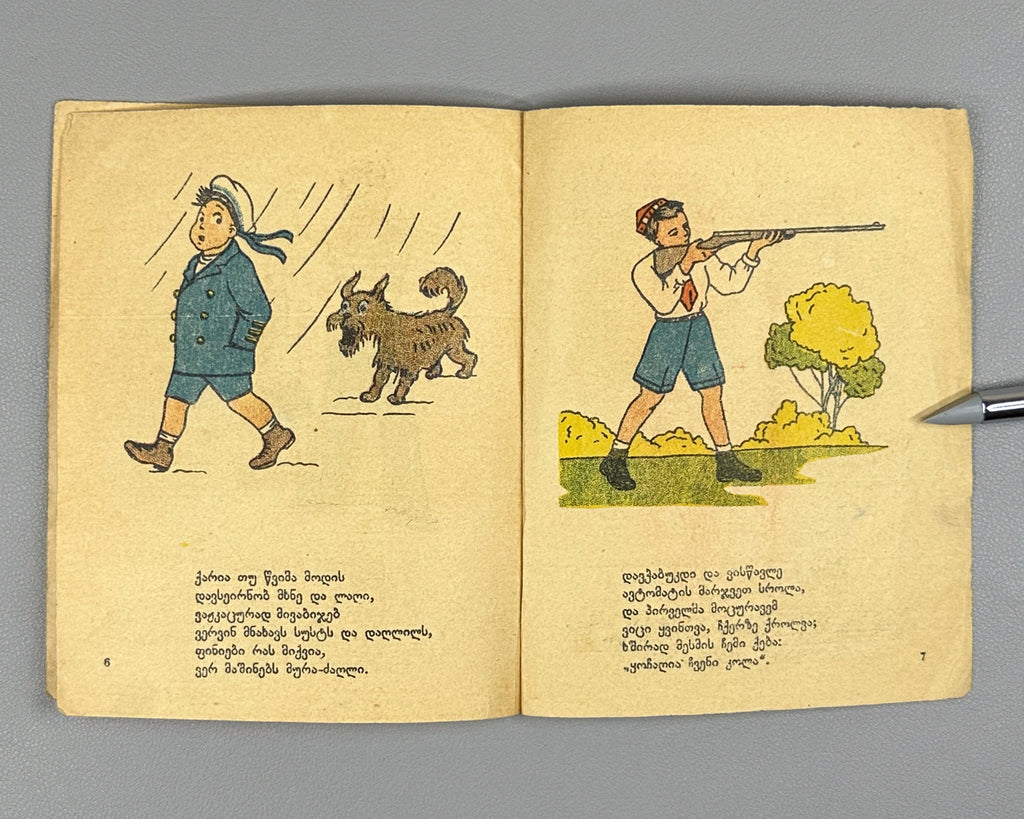 ქარია თუ წვიმა მოდის
დავსეირნობ მხნე და ლაღი,
ვაჟკაცურად მივაბიჯებ
ვერვინ მნახავს სუსტს და დაღლილს,
ფინიები რას მიქვია,
ვერ მაშინებს მურა-ძაღლი.
6
დავჭაბუკდი და ვისწავლე
ავტომატის მარჯვეთ სროლა,
და პირველმა მოცურავემ
ვიცი ყვინთვა, ჩქერზე ქროლვა;
ხშირად მესმის ჩემი ქება:
„ყოჩაღია ჩვენი კოლა“.
7